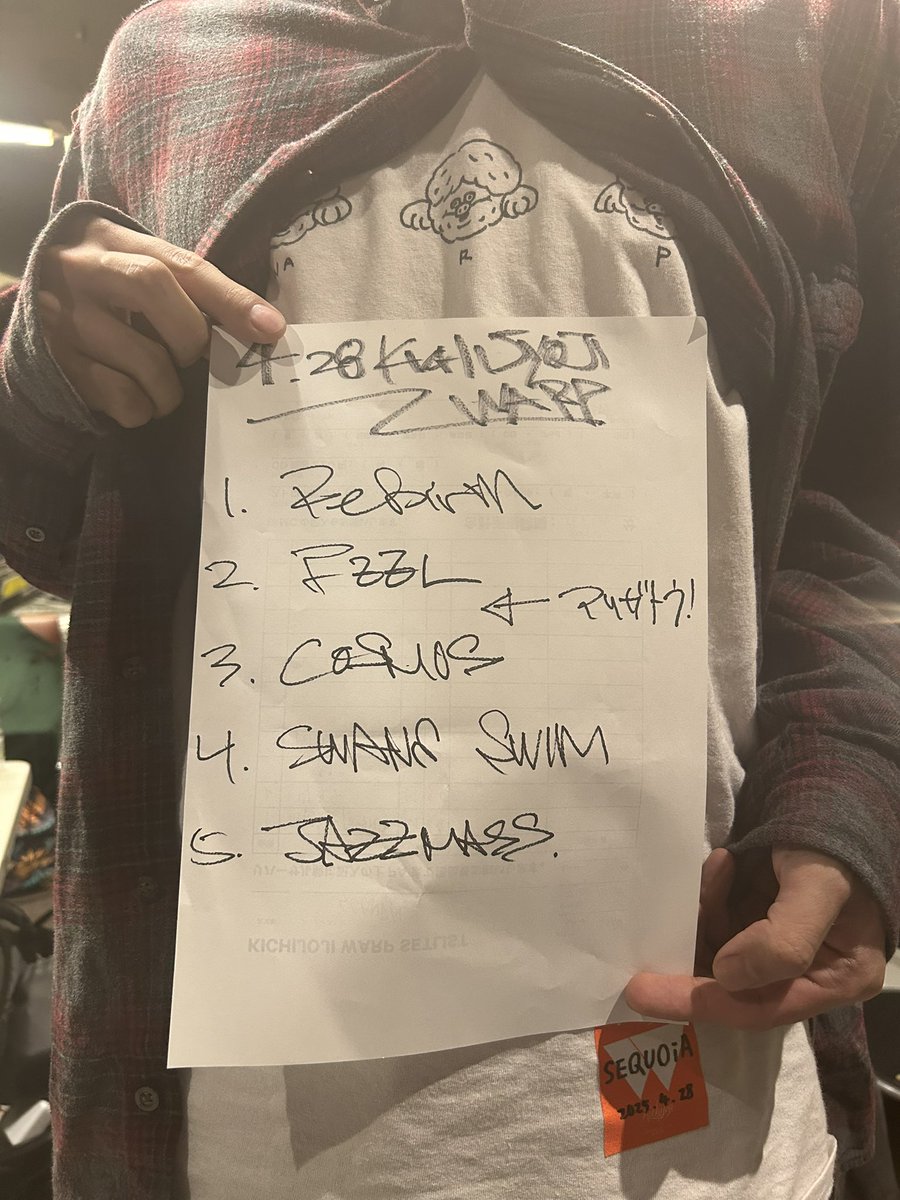 A
R
P
4.28 KICHIJYOJI
WARP
1. Rebirth
2. FZZL
← アリガトウ!
3. COSMOS
4. SWANS SWIM
5. JAZZMASS.
KICHIJOJI WARP SETLIST
SEQUOiA
2025.4.28